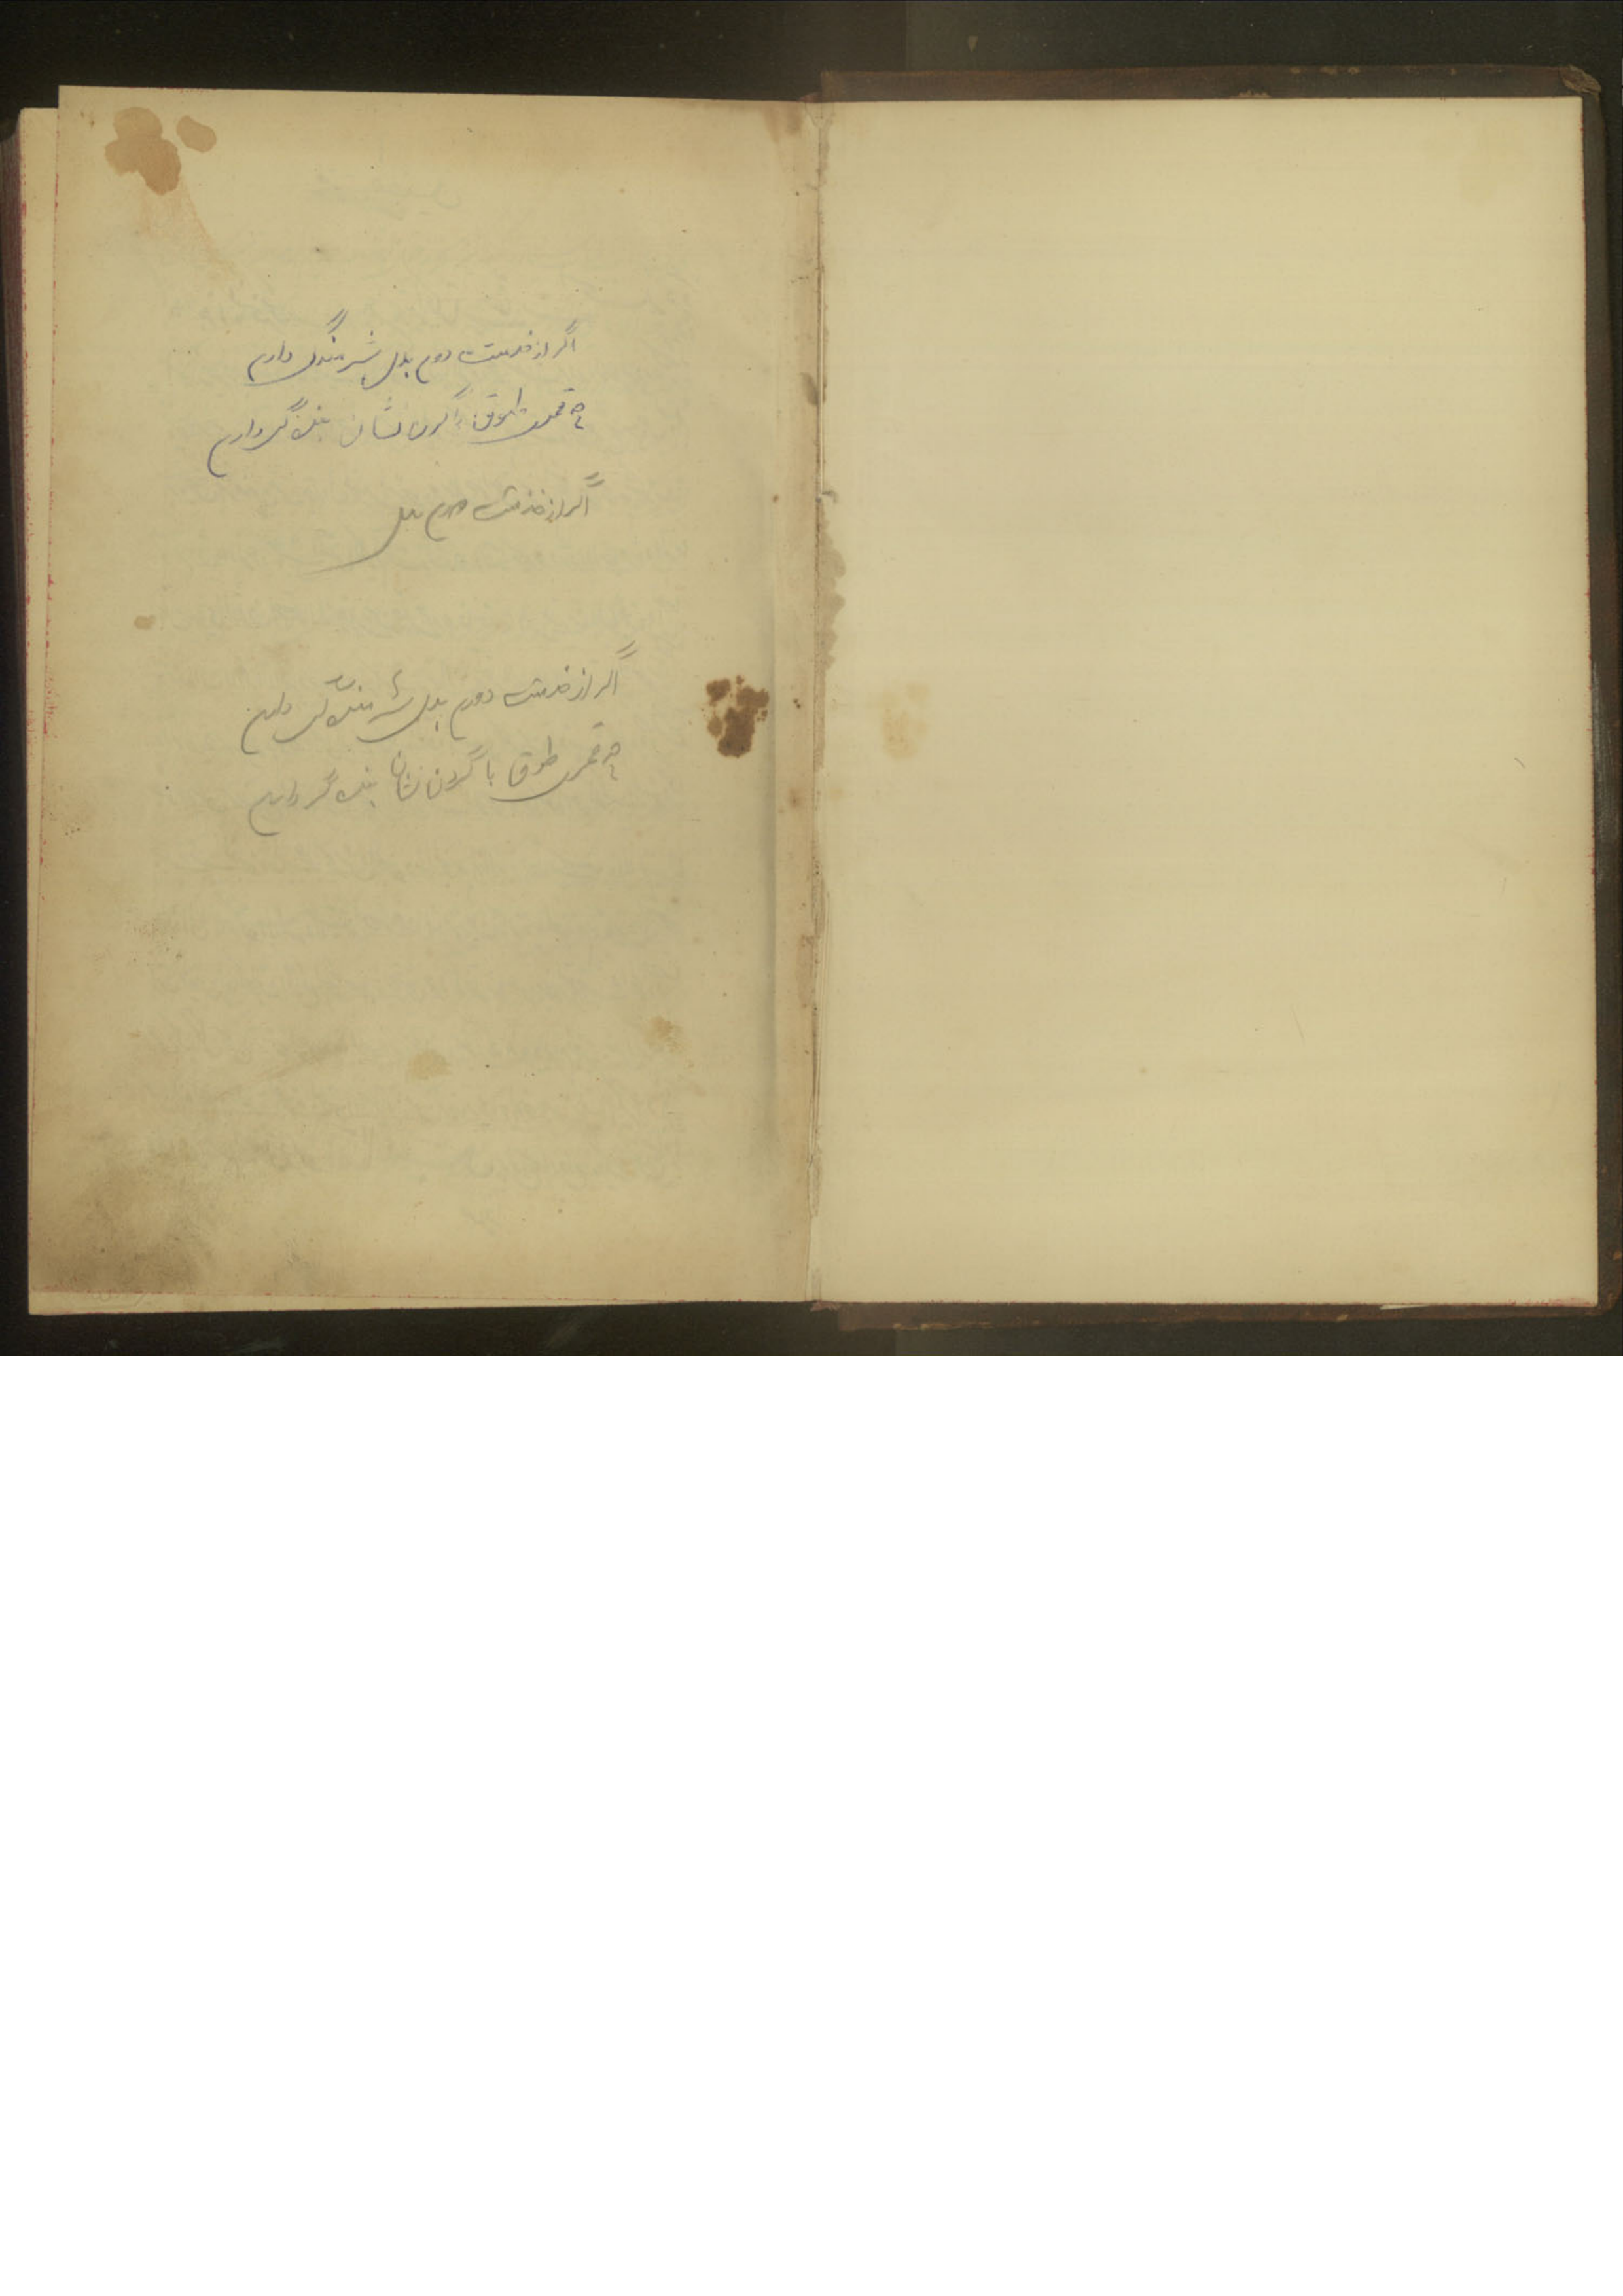 اگر از خدمتت دورم بدل شرمندگی دارم
چه قمری طوق با گردن نشان بندگی دارم
اگر از خذمتت دورم بدل
اگر از خدمتت دورم بدل شرمندگی دارم
چه قمری طوق با گردن نشان بندگی دارم